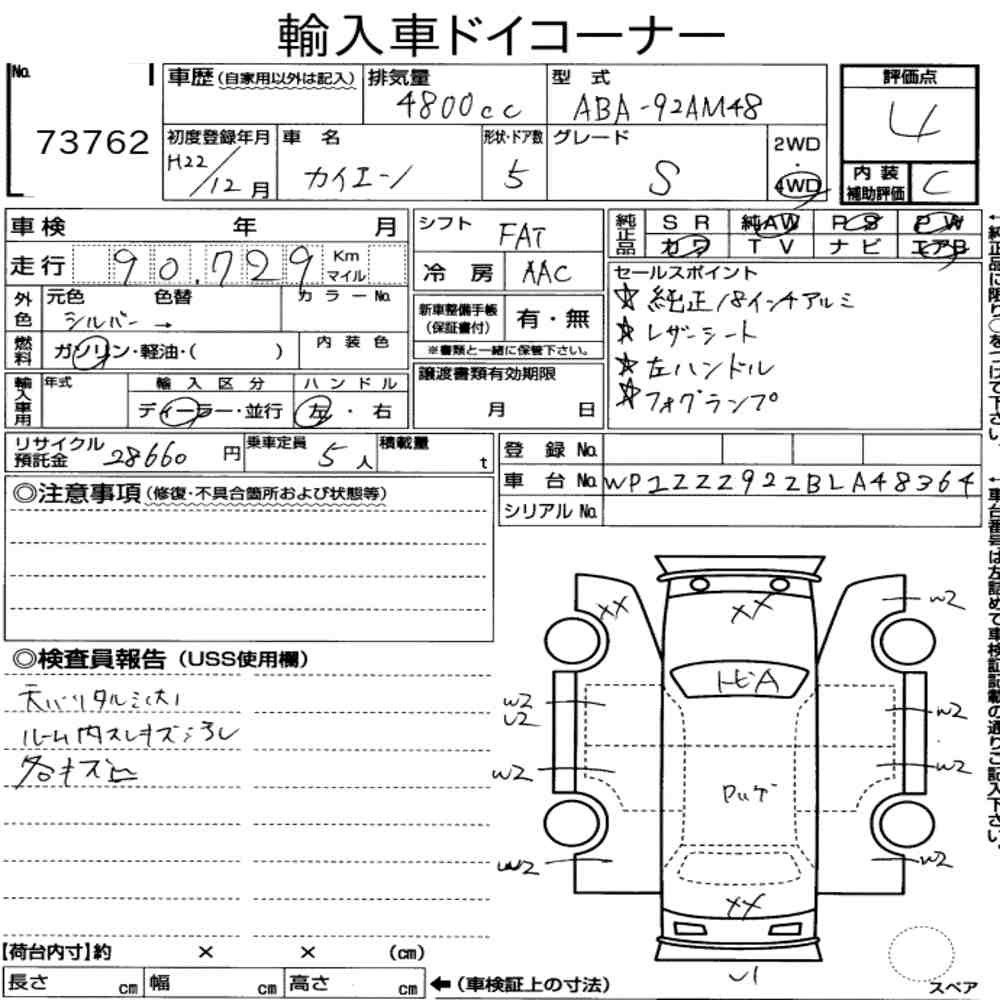 輸入車ドイコーナー
No.
73762
車歴(自家用以外は記入)
排気量
4800cc
型 式
ABA-92AM48
評価点
4
初度登録年月
H22/12月
車 名
カイエン
形状・ドア数
5
グレード
S
2WD
・
4WD
内装補助評価
C
車検 年 月
走行 90,729 Km マイル
シフト
FAT
冷 房
AAC
純正品
SR 純AW PS PW
カワ TV ナビ エアB
外色
元色 色替
シルバー →
カラーNo.
燃料
ガソリン・軽油・( )
内装色
新車整備手帳
(保証書付)
有・無
※書類と一緒に保管下さい。
セールスポイント
☆純正18インチアルミ
☆レザーシート
☆左ハンドル
☆フォグランプ
輸入車用
年式
輸入区分
ディーラー・並行
ハンドル
左・右
譲渡書類有効期限
月 日
リサイクル預託金 28660 円
乗車定員 5 人
積載量 t
登 録 No.
車 台 No. WP1ZZZ92ZBLA48364
シリアル No.
◎注意事項(修復・不具合箇所および状態等)
◎検査員報告(USS使用欄)
天バリタルミ(大)
ルーム内スレキズ汚レ
各キズ凹
XX
XX
W2
トビA
W2
U2
W2
W2
W2
W2
W2
XX
U1
スペア
【荷台内寸】約 × × (cm)
長さ cm 幅 cm 高さ cm
←(車検証上の寸法)
←純正品に限り○をつけて下さい。
←車台番号は左詰めで車検証記載の通りご記入下さい。